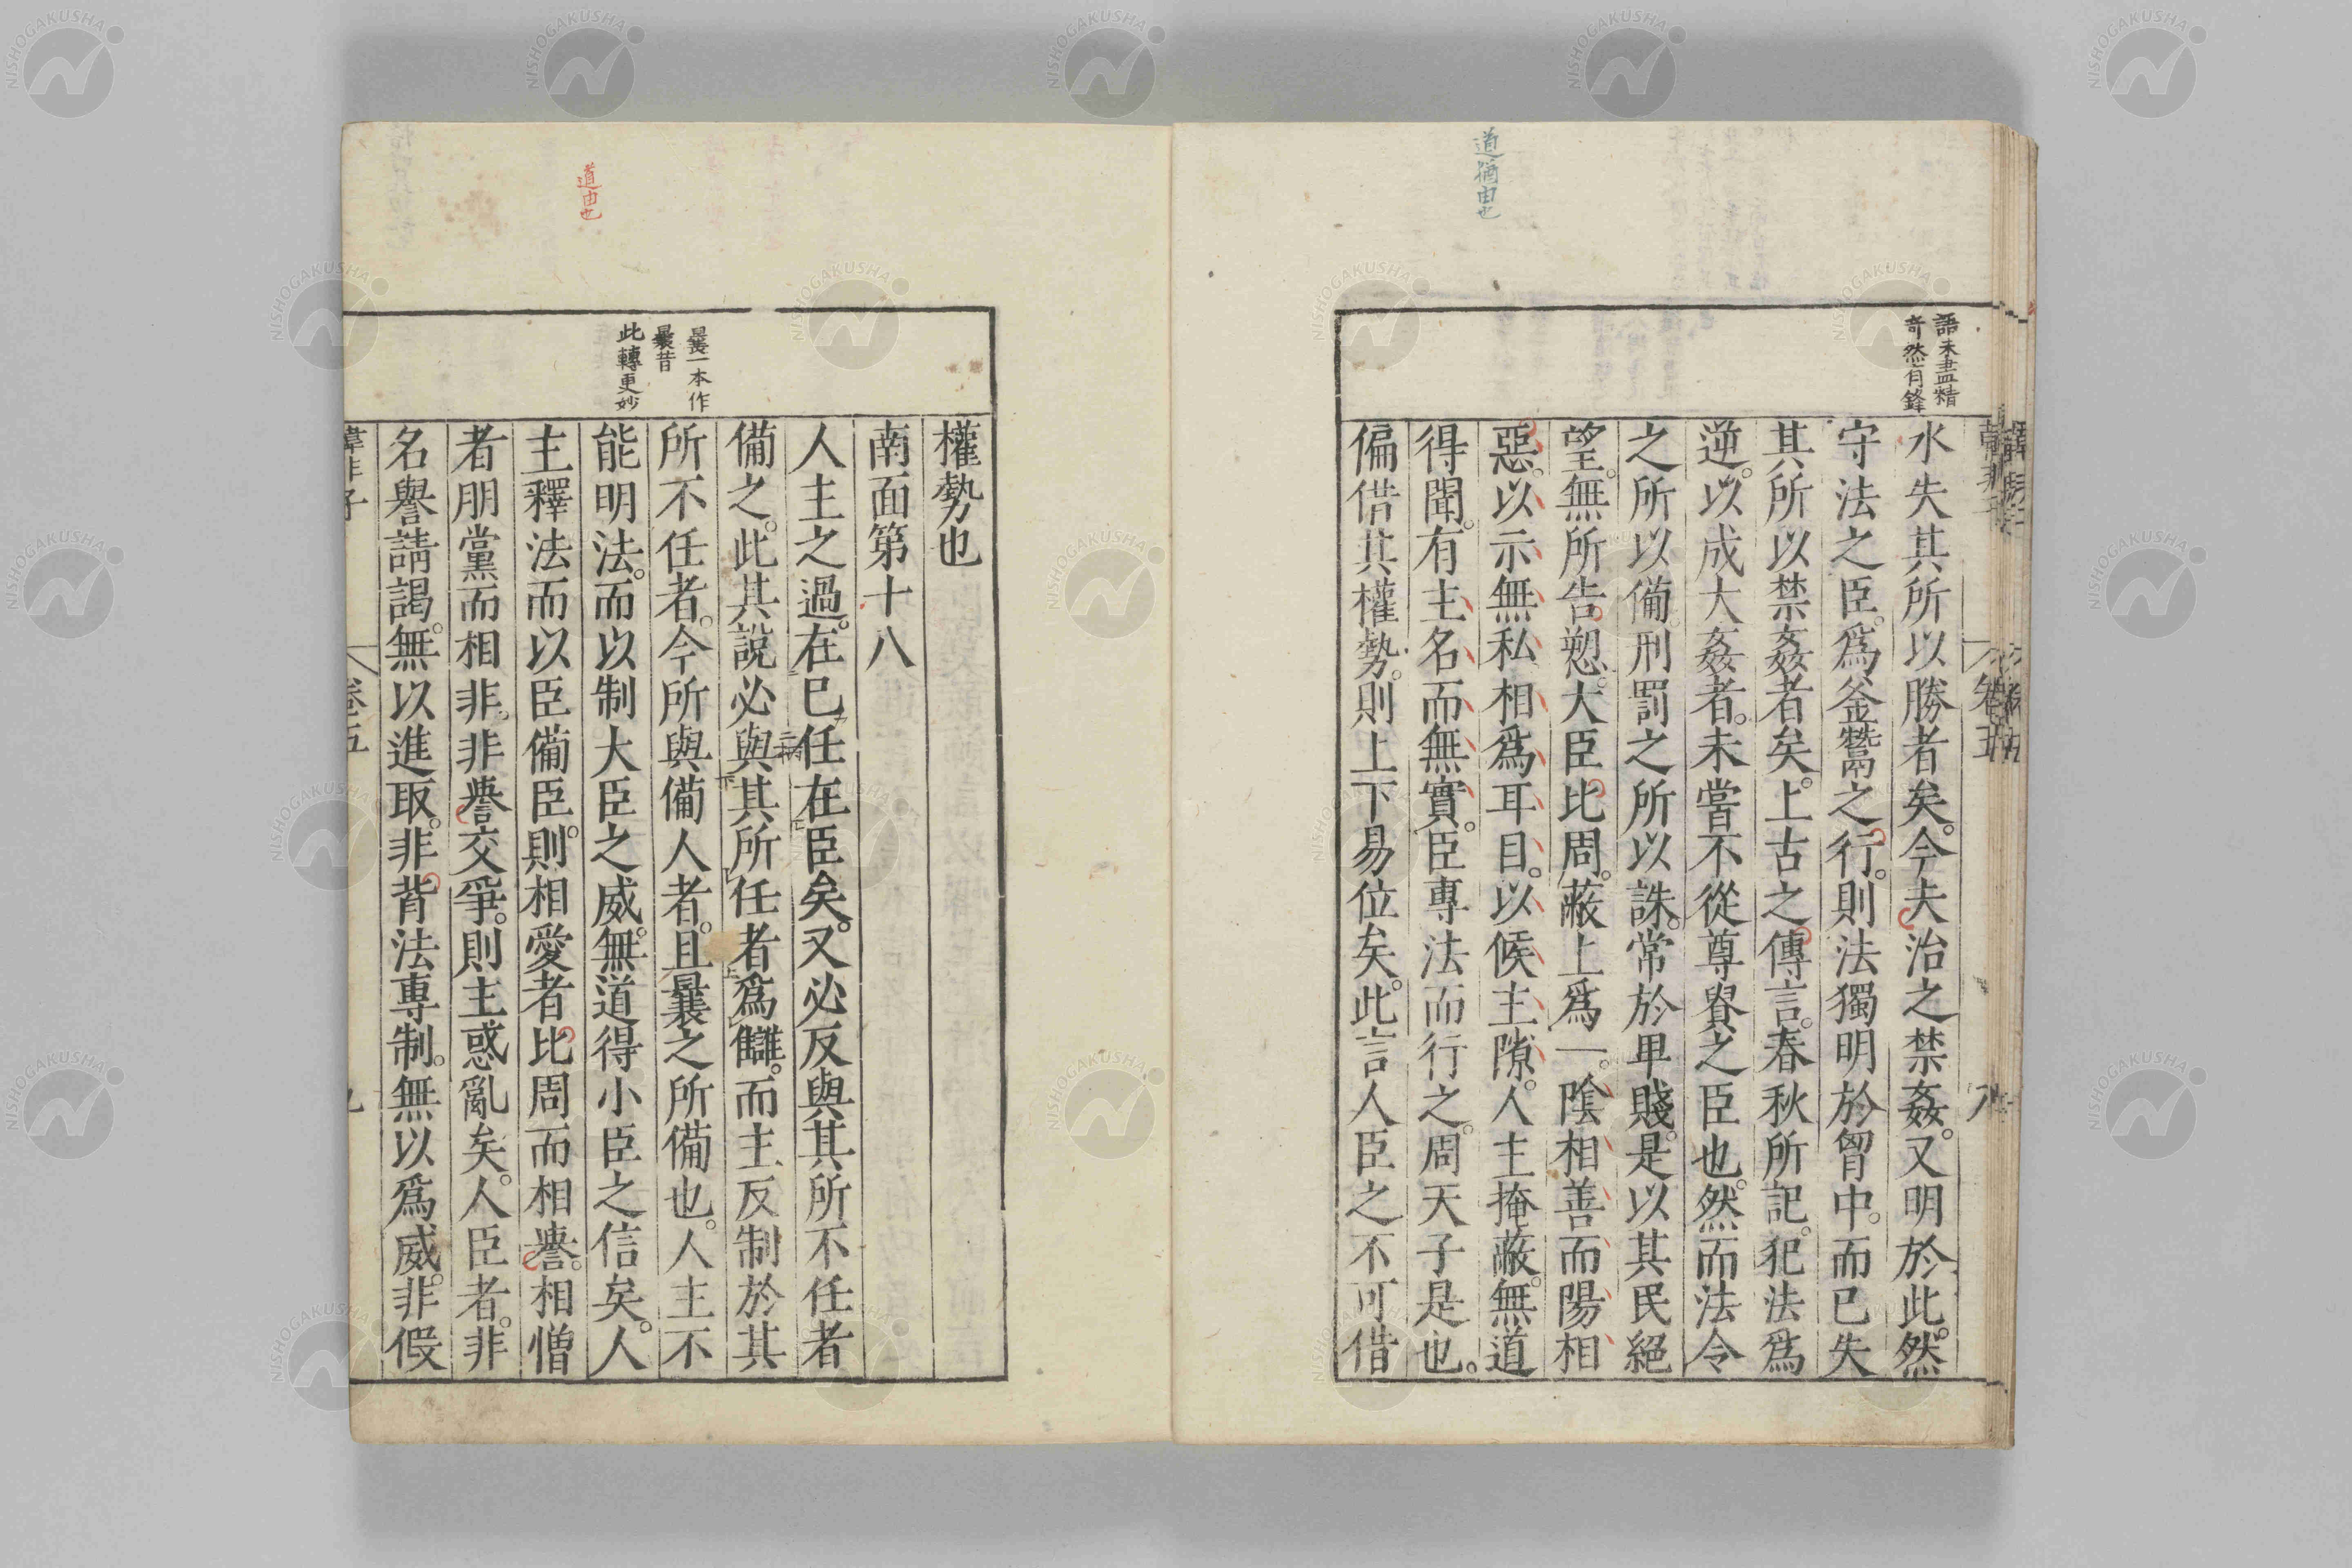 道猶由也
語未盡精
奇然有鋒
水失其所以勝者矣。今夫治之禁姦。又明於此。然
守法之臣。爲釜鬵之行。則法獨明於胷中。而已失
其所以禁姦者矣。上古之傳言。春秋所記。犯法爲
逆。以成大姦者。未嘗不從尊貴之臣也。然而法令
之所以備。刑罰之所以誅。常於卑賤。是以其民絕
望。無所告愬。大臣比周。蔽上爲一。陰相善而陽相
惡。以示無私。相爲耳目。以候主隙。人主掩蔽。無道
得聞。有主名而無實。臣專法而行之。周天子是也。
偏借其權勢。則上下易位矣。此言人臣之不可借
道由也
曩一本作
曩昔
此轉更妙
權勢也
南面第十八
人主之過。在已任在臣矣。又必反與其所不任者
備之。此其說必與其所任者爲讎。而主反制於其
所不任者。今所與備人者。且曩之所備也。人主不
能明法。而以制大臣之威。無道得小臣之信矣。人
主釋法而以臣備臣。則相愛者比周而相譽。相憎
者朋黨而相非。非譽交爭。則主惑亂矣。人臣者。非
名譽請謁。無以進取。非背法專制。無以爲威。非假
韓非子 卷五 九
NISHOGAKUSHA